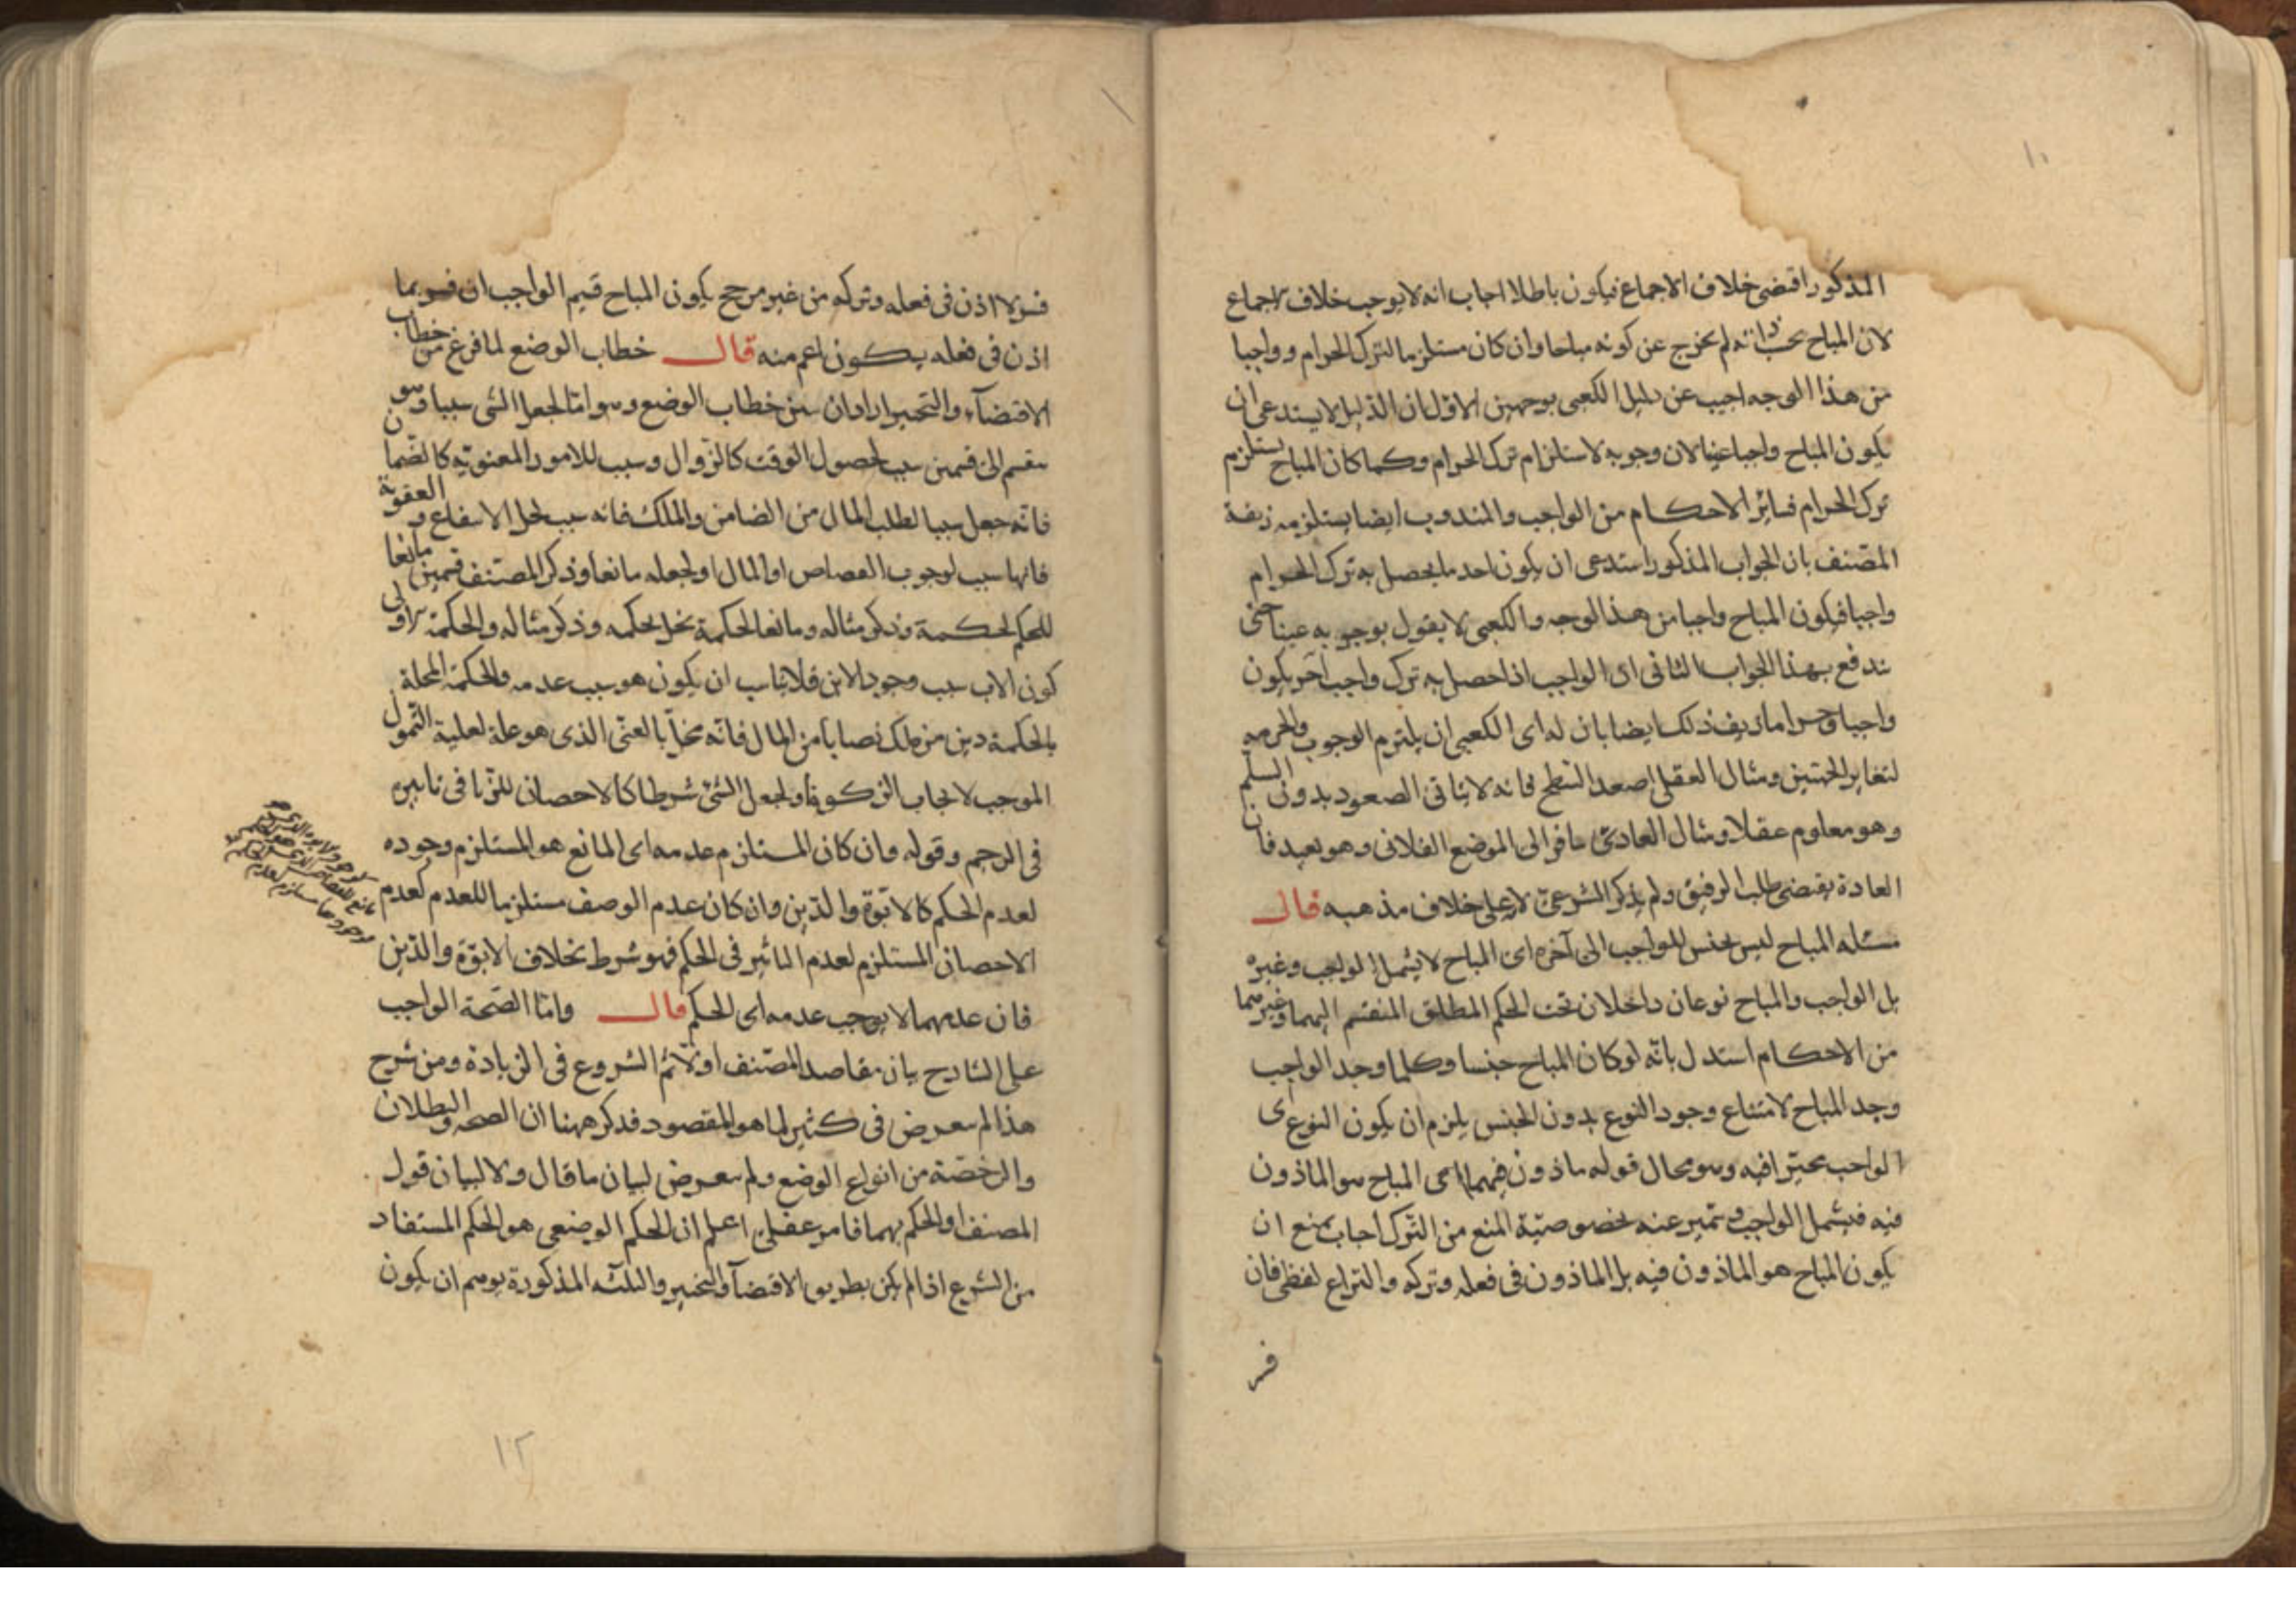 ١٠
المذكور اقتضى خلاف الاجماع فيكون باطلا اجاب انه لا يوجب خلاف الاجماع
لان المباح بحسب ذاته لم يخرج عن كونه مباحا وان كان مستلزما لترك الحرام وواجبا
من هذا الوجه اجيب عن دليل الكعبى بوجهين الاول ان الدليل لا يستدعى ان
يكون المباح واجبا عينا لان وجوبه لاستلزام ترك الحرام وكما كان المباح يستلزم
ترك الحرام فسائر الاحكام من الواجب والمندوب ايضا يستلزمه زيفه
المصنف بان الجواب المذكور استدعى ان يكون احد ما يحصل به ترك الحرام
واجبا فيكون المباح واجبا من هذا الوجه والكعبى لا يقول بوجوبه عينا حتى
يندفع بهذا الجواب الثانى ان الواجب اذا حصل به ترك واجب آخر يكون
واجبا وحراما زيف ذلك ايضا بان له اى الكعبى ان يلتزم الوجوب والحرمه
لتغاير الجهتين ومثال العقلى اصعد السطح فانه لا يتاتى الصعود بدون السلم
وهو معلوم عقلا ومثال العادىّ سافر الى الموضع الفلانى وهو بعيد فان
العادة يقتضى طلب الرفيق ولم يذكر الشرعىّ لانه على خلاف مذهبه قال
مسئله المباح ليس بجنس للواجب الى آخره اى المباح لا يشمل الواجب وغيره
بل الواجب والمباح نوعان داخلان تحت الحكم المطلق المنقسم اليهما وغيرهما
من الاحكام استدل بانّه لو كان المباح جنسا وكلما وجد الواجب
وجد المباح لامتناع وجود النوع بدون الجنس يلزم ان يكون النوع اى
الواجب مخيرا فيه وهو محال قوله ماذون فيهما اى المباح هو الماذون
فيه فيشمل الواجب وتميز عنه بخصوصيّة المنع من التّرك اجاب بمنع ان
يكون المباح هو الماذون فيه بل الماذون فى فعله وتركه والنزاع لفظى فان
فسر
فسر لا اذن فى فعله وتركه من غير مرجح يكون المباح قسيم الواجب ان فسر بما
اذن فى فعله يكون اعم منه قال خطاب الوضع لما فرغ من خطاب
الاقتضآء والتخيير اراد ان يبين خطاب الوضع وهو امّا لجعل الشى سببا وهو
ينقسم الى قسمين سبب لحصول الوقت كالزوال وسبب للامور المعنويّة كالضمان
فانّه جعل سببا لطلب المال من الضامن والملك فانه سبب لحل الانتفاع والعقوبة
فانها سبب لوجوب القصاص او المال او لجعله مانعا وذكر المصنف قسمين مانعا
للحكم لحكمة وذكر مثاله ومانعا لحكمة تخل لحكمه وذكر مثاله والحكمة الاولى
كون الاب سبب وجود الابن فلا يناسب ان يكون هو سبب عدمه والحكمة المخلة
بالحكمة دين من ملك نصابا من المال فانّه مخلّ بالغنى الذى هو علة لعلية التمول
الموجب لايجاب الزكوة او لجعل الشئ شرطا كالاحصان للزنا فى تاثيره
فى الرجم وقوله وان كان المستلزم عدمه اى المانع هو المستلزم وجوده
لعدم الحكم كالابوّة والدّين وان كان عدم الوصف مستلزما للعدم كعدم
الاحصان المستلزم لعدم التاثير فى الحكم فهو شرط بخلاف الابوّة والدّين
فان عدمهما لا يوجب عدمه اى الحكم قال وامّا الصّحة الواجب
على الشارح بيان مقاصد المصنف اولا ثم الشروع فى الزيادة ومن شرح
هذا لم يتعرض فى كثير لما هو المقصود فذكر ههنا ان الصحه والبطلان
والرخصة من انواع الوضع ولم يتعرض لبيان ما قال ولا لبيان قول
المصنف او الحكم بهما فامر عقلىّ اعلم ان الحكم الوضعى هو الحكم المستفاد
من الشرع اذا لم يكن بطريق الاقتضآء والتخيير والثلثه المذكورة يوهم ان يكون
١٢